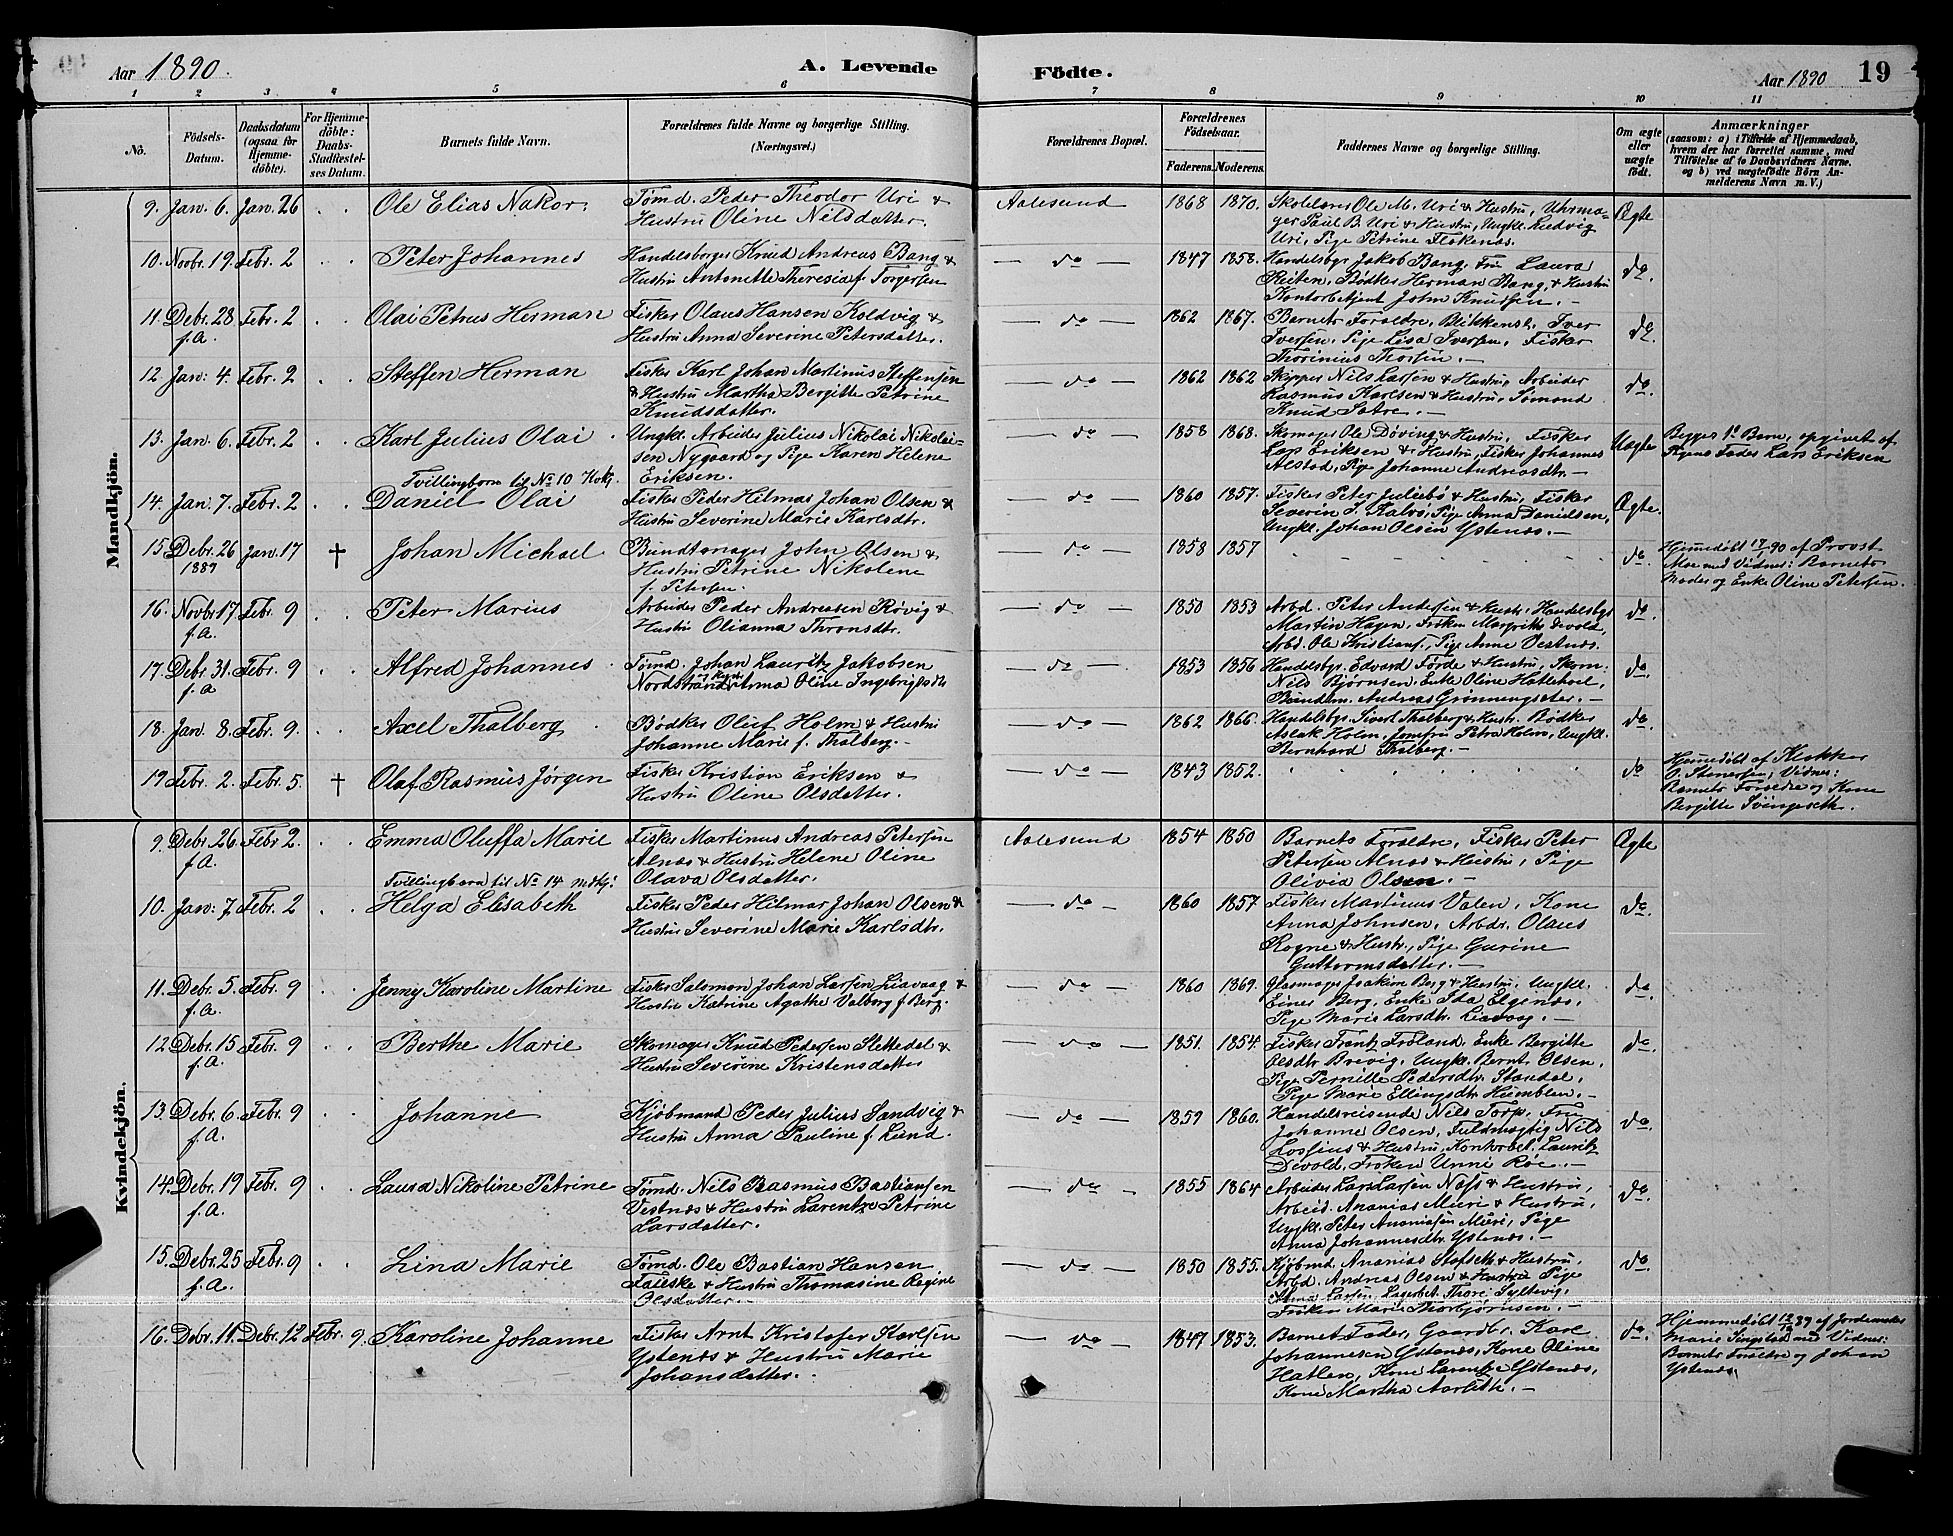 Aar 1890.
A. Levende Födte.
Aar 1890
19
1 2 3 4 5 6 7 8 9 10 11
No.
Födsels-Datum.
Daabsdatum (ogsaa for Hjemme-döbte).
For Hjemme-döbte: Daabs-Stadfæstel-ses Datum.
Barnets fulde Navn.
Forældrenes fulde Navne og borgerlige Stilling. (Næringsvei.)
Forældrenes Bopæl.
Forældrenes Födselsaar.
Faderens. Moderens.
Faddernes Navne og borgerlige Stilling.
Om ægte eller uægte födt.
Anmærkninger
(saasom: a) i Tilfælde af Hjemmedaab, hvem der har forrettet samme, med Tilföielse af to Daabsvidners Navne. og b) ved uægtefödte Börn An-melderens Navn m. V.)
Mandkjön.
9. Jan. 6. Jan. 26 Ole Elias Nakor. Tømd. Peder Theodor Uri & Aalesund 1868 1870. Skolelærer Ole M. Uri & Hustru, Uhrma- Ægte
Hustru Oline Nilsdatter. ger Paul B. Uri & Hustru, Ungkl. Ludvig
Uri, Pige Petrine Flokenæs.
10. Novbr. 19. Febr. 2 Peter Johannes Handelsborger Knud Andreas Bang & do 1847 1858. Handelsbgr Jakob Bang, Fru Laura do.
Hustru Antonette Theresia f. Torgersen Reiten, Bødker Herman Bang & Hustru
Kontorbetjent John Knutsen.
11 Debr. 28 Febr. 2 Olai Petrus Herman Fisker Olaus Hansen Koldvig & do 1862 1867. Barnets Forældre, Blikkensl. Iver do.
f. A. Hustru Anna Severine Petersdatter. Iversen, Pige Lisa Iversen, Fisker
Thorinius Thorsen.
12 Jan: 4. Febr. 2 Steffen Herman Fisker Karl Johan Martinus Steffensen do 1862 1862 Skipper Nils Larsen & Hustru, Arbeider do.
& Hustru Martha Bergitte Petrine Rasmus Karlsen & Hustru, Sømand
Knudsdatter. Knud Sætre.
13. Jan. 6. Febr. 2 Karl Julius Olai Ungkl. Arbeider Julius Nikolai Nikolai- do 1858 1868. Skomager Ole Døving & Hustru, Fisker Uægte Begges 1ste Barn, opgivet af
sen Nygaard og Pige Karen Helene Lars Eriksen & Hustru, Fisker Johannes Pigens Fader Lars Eriksen
Eriksen. Alstad, Pige Johanne Andreasdtr.
Tvillingbarn til No 10 Kvkj.
14. Jan. 7. Febr. 2 Daniel Olai Fisker Peder Hilmar Johan Olsen & do 1860 1857. Fisker Peter Juliebø & Hustru, Fisker Ægte.
Hustru Severine Marie Karlsdtr. Severin J. Kalvø, Pige Anna Danielsen,
Ungkl. Johan Olsen Ystenæs.
15 Debr. 26 Jan. 17 † Johan Michael Bundtmager John Olsen & do 1858 1857 do. Hjemmedøbt 17/1 90 af Provst
1889 Hustru Petrine Nikolene Moe med Vidner: Barnets
f. Petersen. Moder og Enke Oline Petersen.
16. Novbr. 17 Febr. 9 Peter Marius Arbeider Peder Andreasen Røvig & do 1850 1853 Arbd. Peter Andersen & Hustr., Handelsbgr do.
f. A. Hustru Olianna Thronsdtr. Martin Hagen, Frøken Margrethe Devold,
Arbd. Ole Kristians., Pige Anne Vestnæs.
17. Debr. 31. Febr. 9 Alfred Johannes Tømd. Johan Lauritz Jakobsen do 1853 1856 Handelsbgr. Edvard Förde & Hustru, Skom. do.
f. A Nordstrand Anna Oline Ingebrigtsdtr Nils Bjørnsen, Enke Oline Hatlehol,
Bundtm. Andreas Grønningsæter.
18. Jan. 8. Febr. 9. Axel Thalberg Bødker Oluf Holm & Hustru do 1862 1866. Handelsbgr. Sivert Thalberg & Hustr. Bødker do.
Johanne Marie f. Thalberg. Aslak Holm, Jomfru Petra Holm, Ungkl.
Bernhard Thalberg.
19 Febr. 2. Febr. 5. † Olaf Rasmus Jørgen Fisker Kristian Eriksen & do 1843 1852. do Hjemmedøbt af Klokker
Hustru Oline Olsdatter. O. Stenersen; Vidner:
Barnets Forældre og Kone
Bergitte
Kvindekjön.
9. Debr. 26. Febr 2. Emma Oluffa Marie Fisker Martinus Andreas Petersen Aalesund 1854 1850 Barnets Forældre, Fisker Peter Ægte
f. A. Alnæs & Hustru Helene Oline Petersen Alnæs & Hustru, Pige
Olava Olsdatter. Olivia Olsen.
Tvillingbarn til No 14 Mdkj:
10. Jan: 7. Febr. 2 Helga Elisabeth Fisker Peder Hilmar Johan Olsen & do 1860 1857 Fisker Martinus Valen, Kone do.
Hustru Severine Marie Karlsdtr. Anna Johnsen, Arbdr. Olaus
Rogne & Hustr., Pige Gurine
Guttormsdatter.
11. Debr. 5. Febr. 9 Jenny Karoline Martine Fisker Salomon Johan Larsen Liavaag & do 1860 1869. Glasmager Joakim Berg & Hustru, Ungkl. do.
f. A. Hustru Katrine Agathe Valborg f. Berg. Einar Berg, Enke Ida Elgenæs,
Pige Marie Larsdtr. Liavaag.
12 Debr. 15 Febr. 9 Berthe Marie Skomager Knud Pedersen Slettedal & do 1851. 1854. Fisker Frantz Fröland, Enke Bergitte do.
f. A. Hustru Severine Kristensdatter Olsdtr Brevig, Ungkl. Bernt Olsen,
Pige Pernille Pedersdtr. Standal,
Pige Marie Ellingsdtr. Humblen.
13. Debr. 6. Febr. 9 Johanne Kjøbmand Peder Julius Sandvig & do 1859 1860. Handelsreisende Nils Torp, Fru do.
f. A. Hustru Anna Pauline f. Lund. Johanne Olsen, Fuldmægtig Nils
Lossius & Hustru, Kontorbet. Lauritz
Devold, Frøken Unni Røe.
14. Debr. 19 Febr. 9 Laura Nikoline Petrine Tømd. Nils Rasmus Bastiansen do 1855 1864 Arbeider Lars Larsen Næss & Hustru, do.
f. A. Vestnæs & Hustru Larentze Petrine Arbeid. Ananias Muri & Hustru,
Larsdatter. Ungkl. Peter Ananiasen Muri, Pige
Anna Johannesdtr. Ystenæs.
15. Debr. 25 Febr. 9 Lina Marie Tømd. Ole Bastian Hansen do 1850 1855. Kjøbmd. Ananias Stafseth & Hustru, do.
f. A. Faleske & Hustru Thomasine Regine Arbd. Andreas Olsen & Hustru Pige
Olsdatter. Anna Larsen, Lagerbt. Thore Syltevig,
Frøken Marie Thorbjørnsen.
16. Debr. 11. Debr. 12 Febr. 9. Karoline Johanne Fisker Arnt Kristofer Karlsen do 1847 1853. Barnets Fader, Gaardbr. Karl do. Hjemmedøbt 12/12 89 af Jordemoder
Ystenæs & Hustru Marie Johannesen Ystenæs, Kone Oline Marie Singstad med Vidner:
Johansdatter. Hatlen, Kone Larentze Ystenæs, Barnets Forældre og Johan
Kone Martha Aarseth. Ystenæs